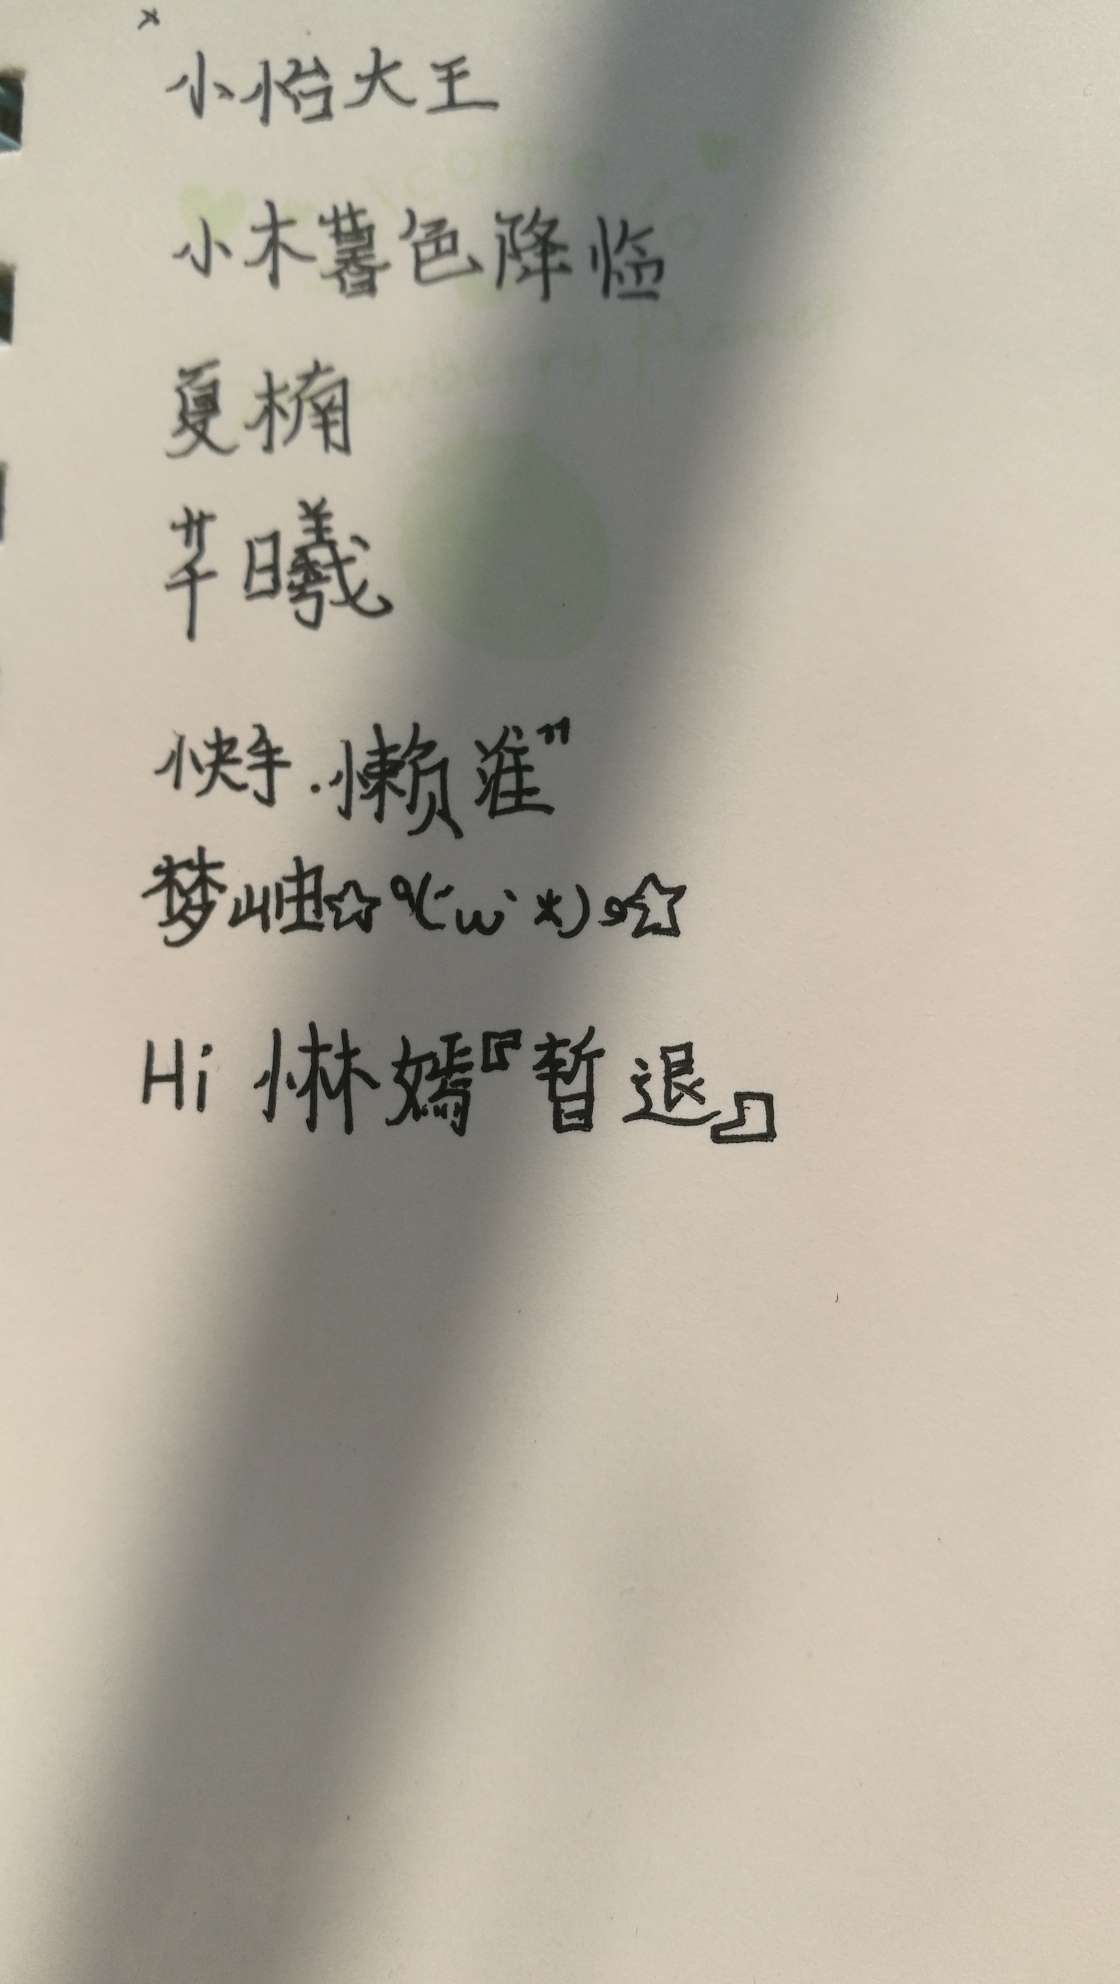 小怡大王
小木暮色降临
夏楠
芊曦
快手.懒淮”
梦岫☆٩(´ω`*)و☆
Hi 惏嫣『暂退』